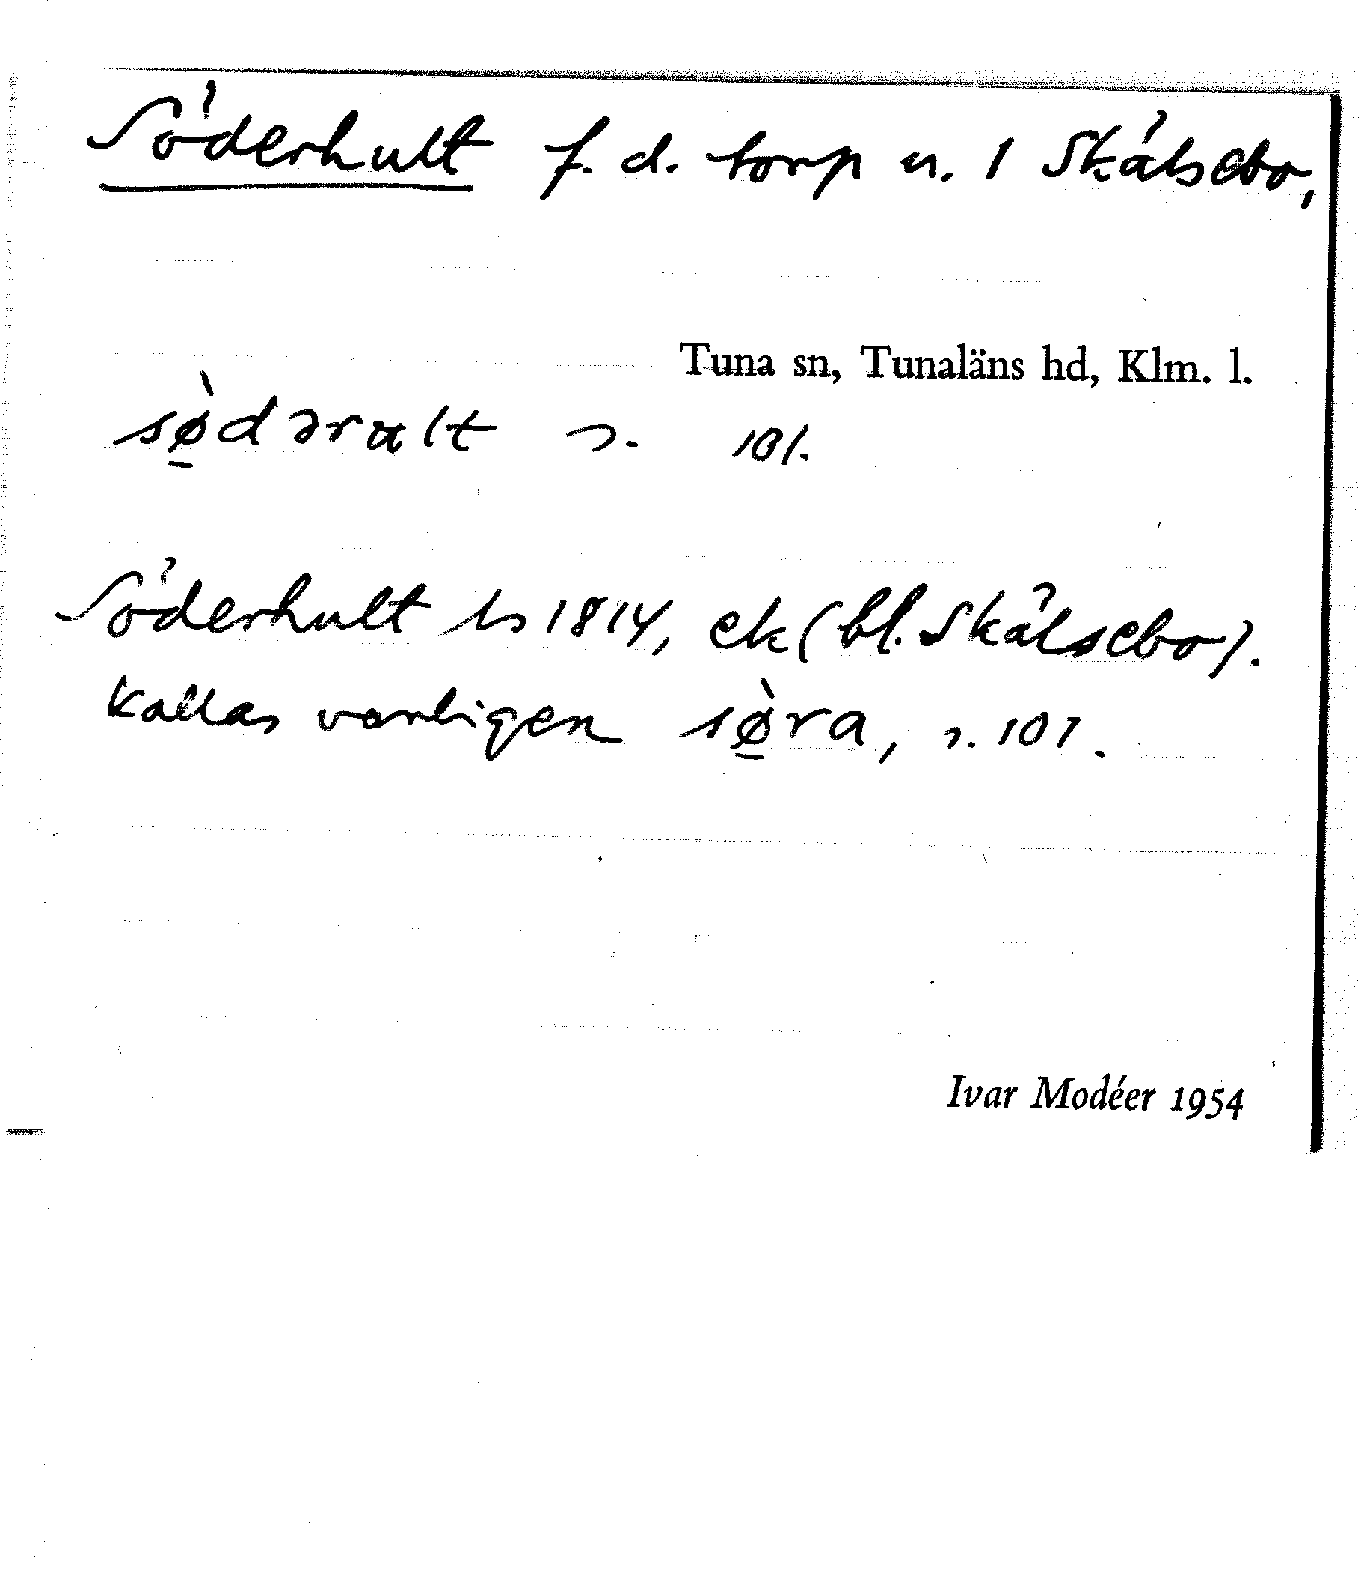 Söderhult f. d. torp u. 1 Skälsebo,
Tuna sn, Tunaläns hd, Klm. l.
sø̀dərult 2. 101.
Söderhult hs 1814, ek (bl. Skälsebo).
kallas vanligen sø̀ra, 2. 101.
Ivar Modéer 1954